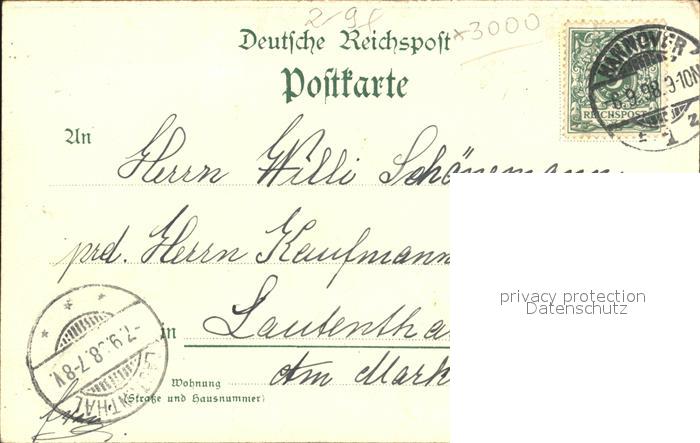 2-98
x3000
Deutsche Reichspost
Postkarte
HANNOVER
6.9.98.3-10N
REICHSPOST
An
Herrn Willi Schönemann
prd. Herrn Kaufmann
privacy protection
Datenschutz
in Lautentha
-7.9.98.7-8V.
LAUTENTHAL
Am Mark
Wohnung
(Straße und Hausnummer)